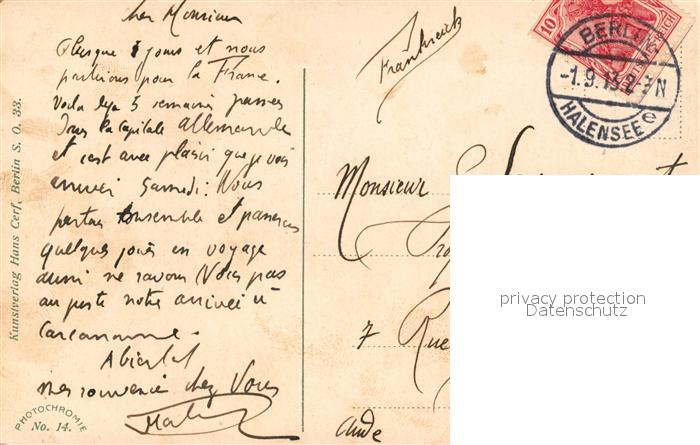 cher Monsieur
quelque jours et nous
partirons pour la France.
Voila deja 5 semaines passees
dans la capitale allemande
et c'est avec plaisir que je vois
arriver Samedi: Nous
partons ensemble et passerons
quelques jours en voyage
aussi ne savons Nous pas
au juste notre arrivée à
Carcassonne.
A bientot
chez Vous
Frankreich
10
BERLIN
-1.9.13.2-3N
HALENSEE
Monsieur
7 Rue
Aude
privacy protection
Datenschutz
Kunstverlag Hans Cerf, Berlin S. O. 33.
PHOTOCHROMIE
No. 14.